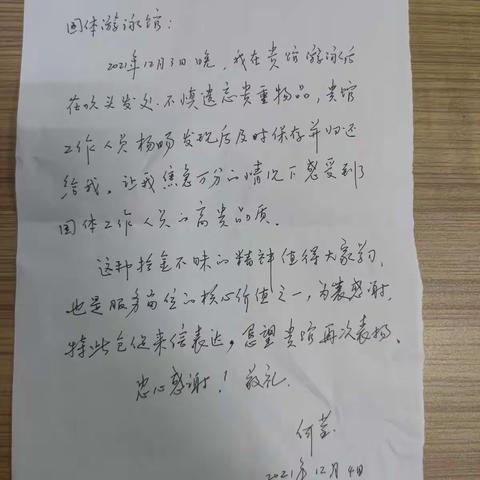 国体游泳馆：
2021年12月3日晚，我在贵馆游泳后
在吹头发处不慎遗忘贵重物品，贵馆
工作人员杨旸发现后及时保存并归还
给我，让我焦急万分的情况下感受到
国体工作人员的高贵品质。
这种拾金不昧的精神值得大家学习，
也是服务岗位的核心价值之一，为表感谢，
特此仓促来信表达，恳望贵馆再次表扬。
忠心感谢！敬礼
何莹
2021年12月4日